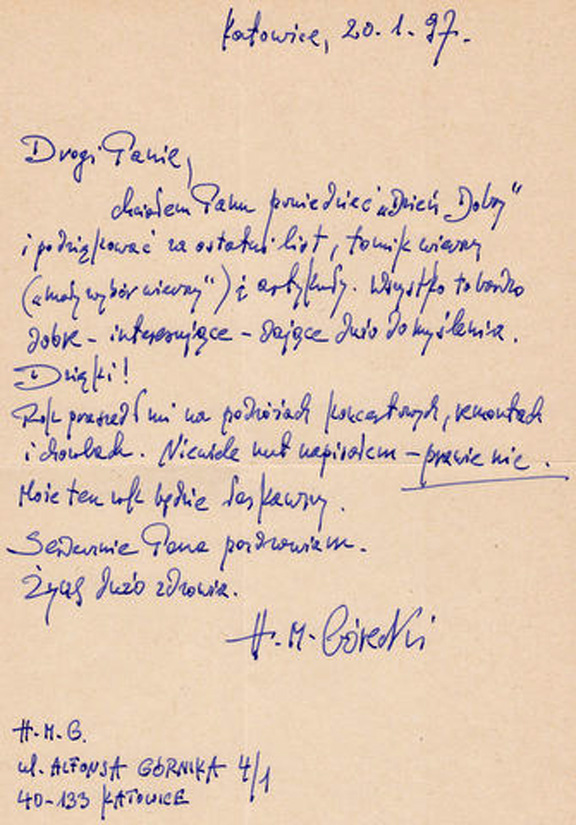 Katowice, 20.1.97.
Drogi Panie,
chciałem Panu powiedzieć „Dzień Dobry”
i podziękować za ostatni list, tomik wierszy
(„mały wybór wierszy”) i artykuły. Wszystko to bardzo
dobre – interesujące – dające dużo do myślenia.
Dzięki!
Rok przeszedł mi na podróżach koncertowych, remontach
i chorobach. Niewiele nut napisałem – prawie nic.
Może ten rok będzie łaskawszy.
Serdecznie Pana pozdrawiam.
Życzę dużo zdrowia.
H.M. Górecki
H.M.G.
ul. ALFONSA GÓRNIKA 4/1
40-133 KATOWICE